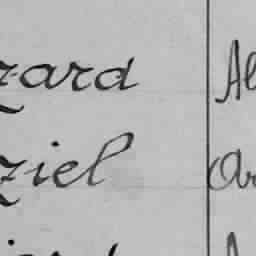 zard Al
ziel Or